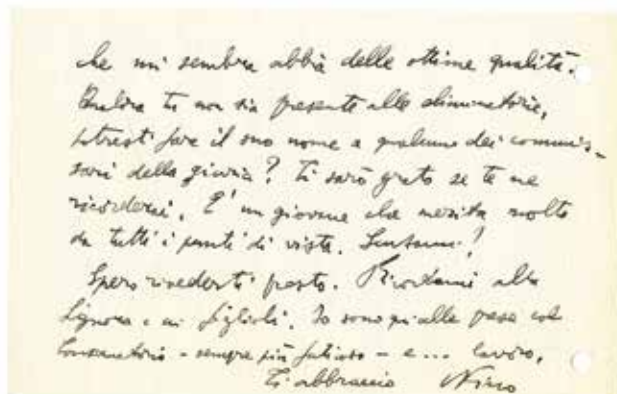 che mi sembra abbia delle ottime qualità.
Qualora tu non sia presente alle eliminatorie,
potresti fare il suo nome a qualcuno dei commis-
sari della giuria? Ti sarò grato se te ne
ricorderai. E' un giovane che merita molto
da tutti i punti di vista. Scusami!
Spero rivederti presto. Ricordami alla
Signora e ai figlioli. Io sono qui alle prese col
Conservatorio - sempre più faticoso - e... lavoro.
Ti abbraccio Nino